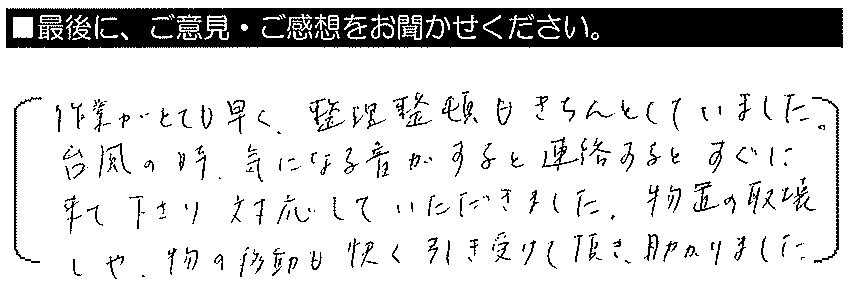 ■最後に、ご意見・ご感想をお聞かせください。
作業がとても早く、整理整頓もきちんとしていました。
台風の時、気になる音がすると連絡するとすぐに
来て下さり対応していただきました。物置の取壊
しや、物の移動も快く引き受けて頂き、助かりました